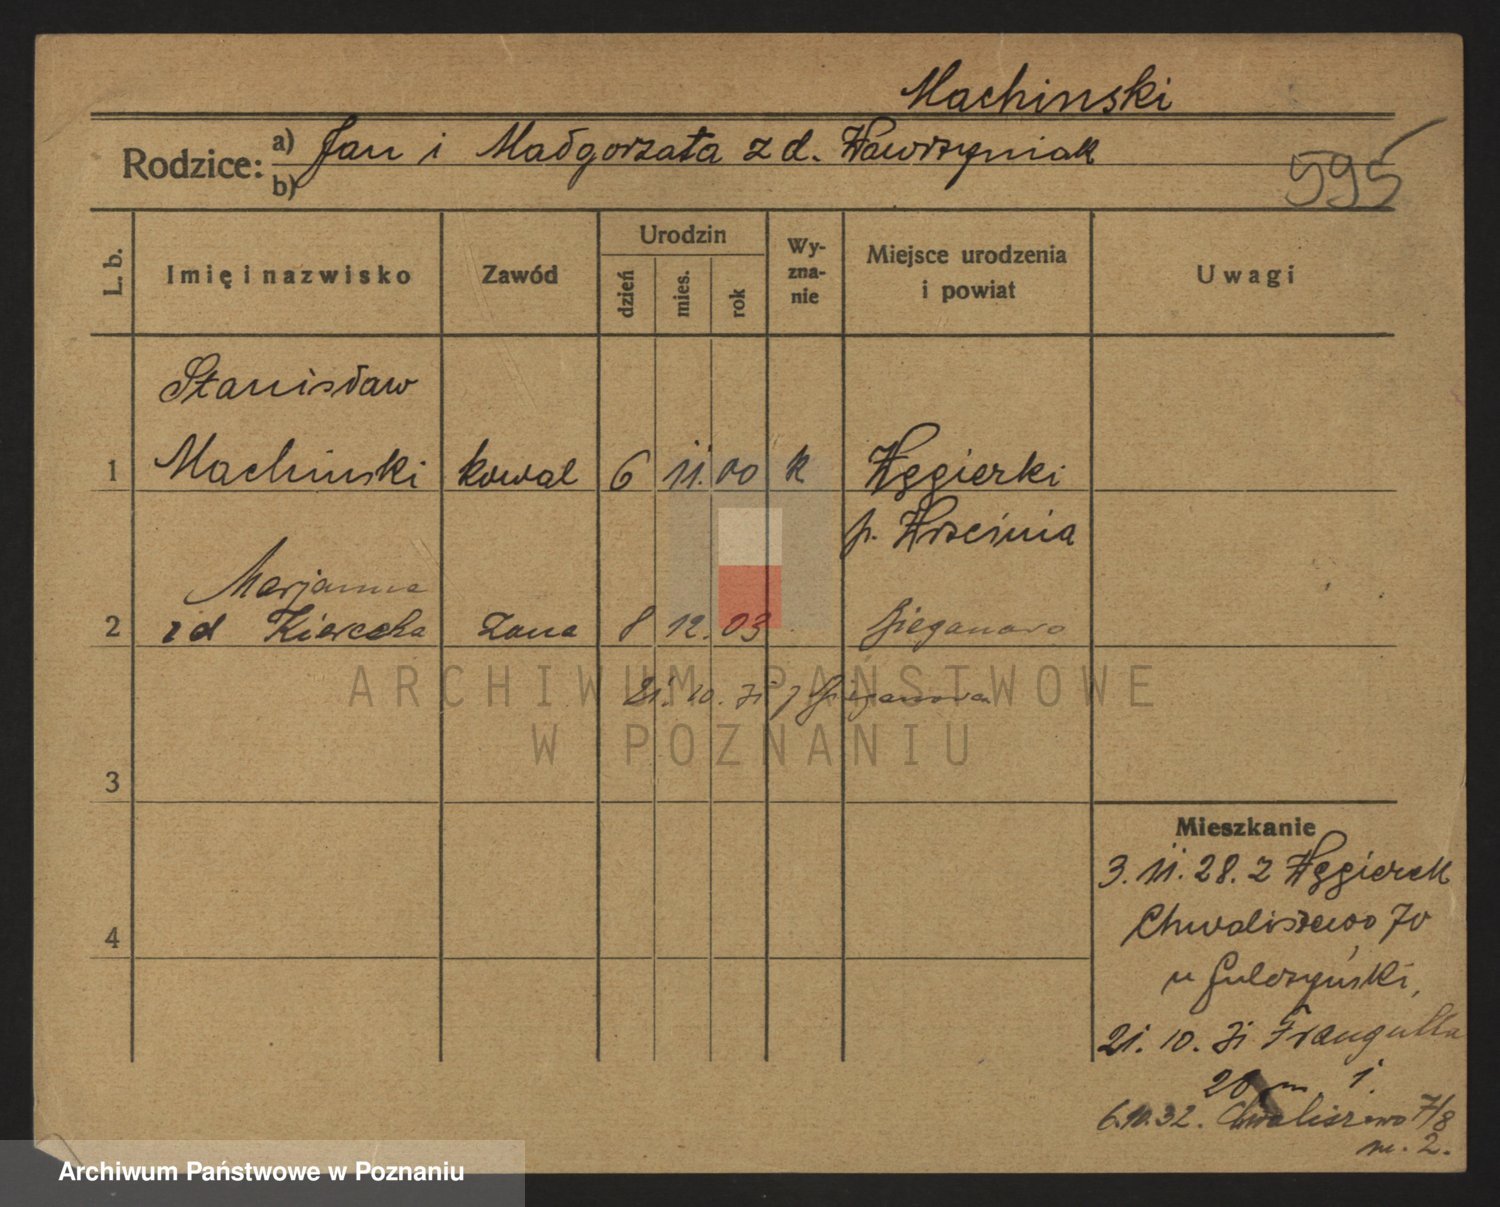 Machinski
Rodzice: a) Jan i Małgorzata z d. Wawrzyniak
b)
595
L. b.
Imię i nazwisko
Zawód
Urodzin
dzień
mies.
rok
Wy-
zna-
nie
Miejsce urodzenia
i powiat
Uwagi
Stanisław
1 Machinski kowal 6 11. 00 k Węgierki
p. Września
Marjanna
2 z d żona 8 12. 03 Gieganowo
21. 10. 31 z
3
4
Mieszkanie
3. 11. 28. z Węgierek
Chwaliszewo 70
u Gulczyński,
21. 10. 31
20 m. 1.
6.10.32. Chwaliszewo 7/8
m. 2.
ARCHIWUM PAŃSTWOWE
W POZNANIU
Archiwum Państwowe w Poznaniu